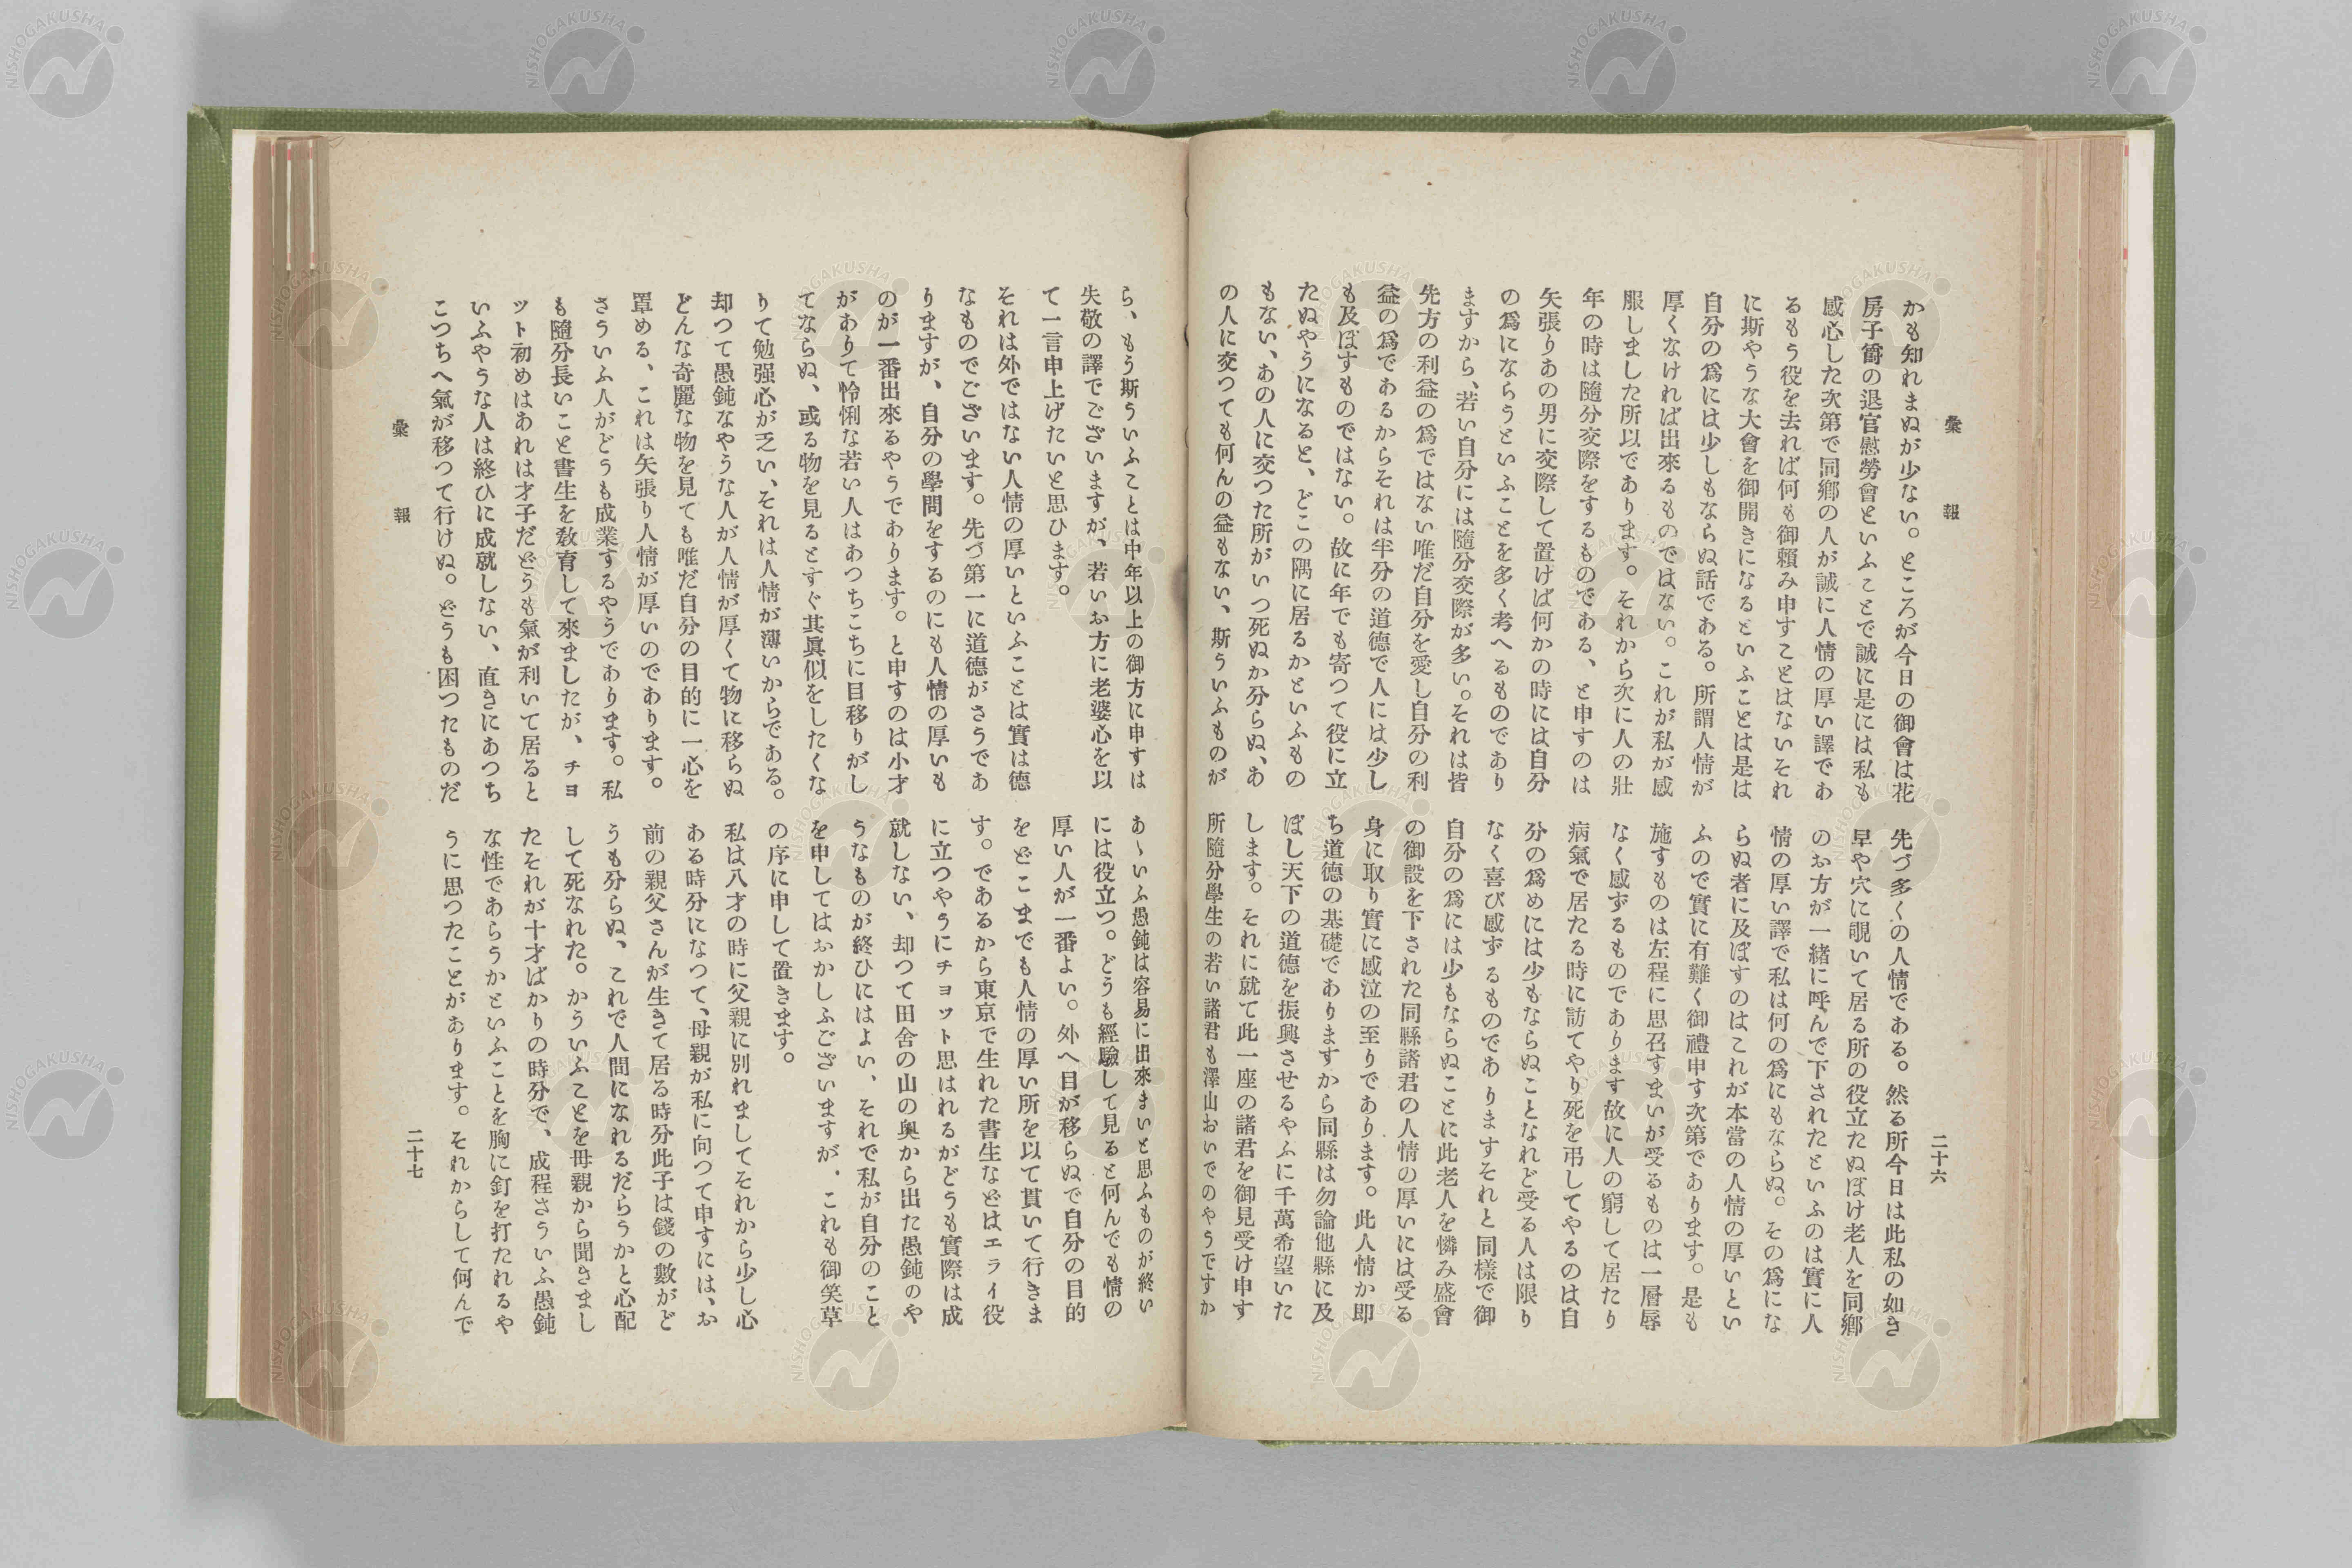 彙報
二十六
かも知れまぬが少ない。ところが今日の御會は花
房子爵の退官慰勞會といふことで誠に是には私も
感心した次第で同鄕の人が誠に人情の厚い譯であ
るもう役を去れば何も御賴み申すことはないそれ
に斯やうな大會を御開きになるといふことは是は
自分の爲には少しもならぬ話である。所謂人情が
厚くなければ出來るものではない。これが私が感
服しました所以であります。それから次に人の壯
年の時は隨分交際をするものである、と申すのは
矢張りあの男に交際して置けば何かの時には自分
の爲にならうといふことを多く考へるものであり
ますから、若い自分には隨分交際が多い。それは皆
先方の利益の爲ではない唯だ自分を愛し自分の利
益の爲であるからそれは半分の道德で人には少し
も及ぼすものではない。故に年でも寄つて役に立
たぬやうになると、どこの隅に居るかといふもの
もない、あの人に交つた所がいつ死ぬか分らぬ、あ
の人に交つても何んの益もない、斯ういふものが
先づ多くの人情である。然る所今日は此私の如き
早や穴に覗いて居る所の役立たぬぼけ老人を同鄕
のお方が一緒に呼んで下されたといふのは實に人
情の厚い譯で私は何の爲にもならぬ。その爲にな
らぬ者に及ぼすのはこれが本當の人情の厚いとい
ふので實に有難く御禮申す次第であります。是も
施すものは左程に思召すまいが受るものは一層辱
なく感ずるものであります故に人の窮して居たり
病氣で居たる時に訪てやり死を弔してやるのは自
分の爲めには少もならぬことなれど受る人は限り
なく喜び感ずるものでありますそれと同樣で御
自分の爲には少もならぬことに此老人を憐み盛會
の御設を下された同縣諸君の人情の厚いには受る
身に取り實に感泣の至りであります。此人情か即
ち道德の基礎でありますから同縣は勿論他縣に及
ぼし天下の道德を振興させるやふに千萬希望いた
します。それに就て此一座の諸君を御見受け申す
所隨分學生の若い諸君も澤山おいでのやうですか
彙報
二十七
ら、もう斯ういふことは中年以上の御方に申すは
失敬の譯でございますが、若いお方に老婆心を以
て一言申上げたいと思ひます。
それは外ではない人情の厚いといふことは實は德
なものでございます。先づ第一に道德がさうであ
りますが、自分の學問をするのにも人情の厚いも
のが一番出來るやうであります。と申すのは小才
がありて怜悧な若い人はあつちこちに目移りがし
てならぬ、或る物を見るとすぐ其眞似をしたくな
りて勉强心が乏い、それは人情が薄いからである。
却つて愚鈍なやうな人が人情が厚くて物に移らぬ
どんな奇麗な物を見ても唯だ自分の目的に一心を
罩める、これは矢張り人情が厚いのであります。
さういふ人がどうも成業するやうであります。私
も隨分長いこと書生を敎育して來ましたが、チヨ
ツト初めはあれは才子だどうも氣が利いて居ると
いふやうな人は終ひに成就しない、直きにあつち
こつちへ氣が移つて行けぬ。どうも困つたものだ
あゝいふ愚鈍は容易に出來まいと思ふものが終い
には役立つ。どうも經驗して見ると何んでも情の
厚い人が一番よい。外へ目が移らぬで自分の目的
をどこまでも人情の厚い所を以て貫いて行きま
す。であるから東京で生れた書生などはエライ役
に立つやうにチヨット思はれるがどうも實際は成
就しない、却つて田舍の山の奧から出た愚鈍のや
うなものが終ひにはよい、それで私が自分のこと
を申してはおかしふございますが、これも御笑草
の序に申して置きます。
私は八才の時に父親に別れましてそれから少し心
ある時分になつて、母親が私に向つて申すには、お
前の親父さんが生きて居る時分此子は錢の數がど
うも分らぬ、これで人間になれるだらうかと心配
して死なれた。かういふことを母親から聞きまし
たそれが十才ばかりの時分で、成程さういふ愚鈍
な性であらうかといふことを胸に釘を打たれるや
うに思つたことがあります。それからして何んで